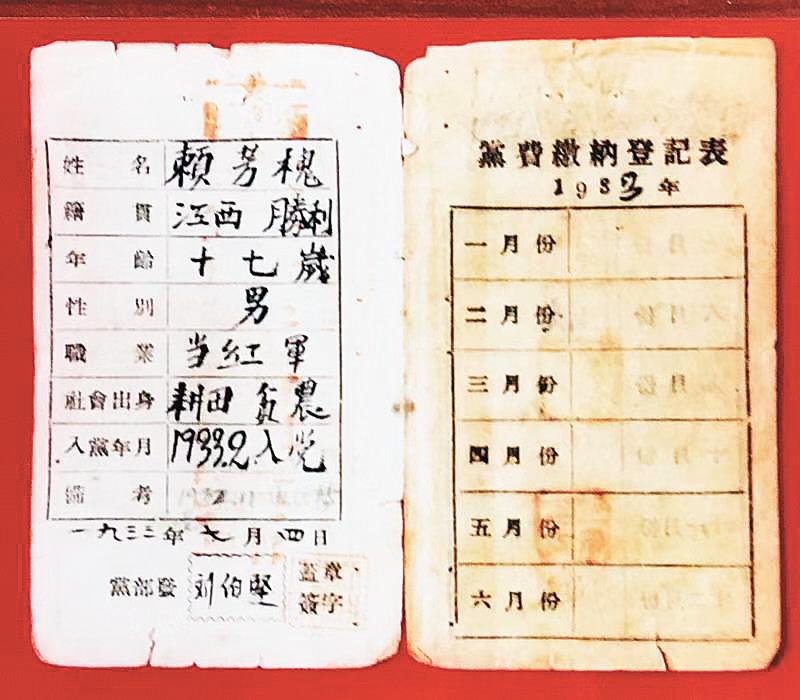 姓名 賴芳槐
籍貫 江西 勝利
年齡 十七歲
性別 男
職業 当红軍
社會出身 耕田 貧農
入黨年月 1933.2入党
備考
一九三三年七月四日
黨部發 刘伯堅 蓋章
簽字
黨費繳納登記表
1933年
一月份
二月份
三月份
四月份
五月份
六月份